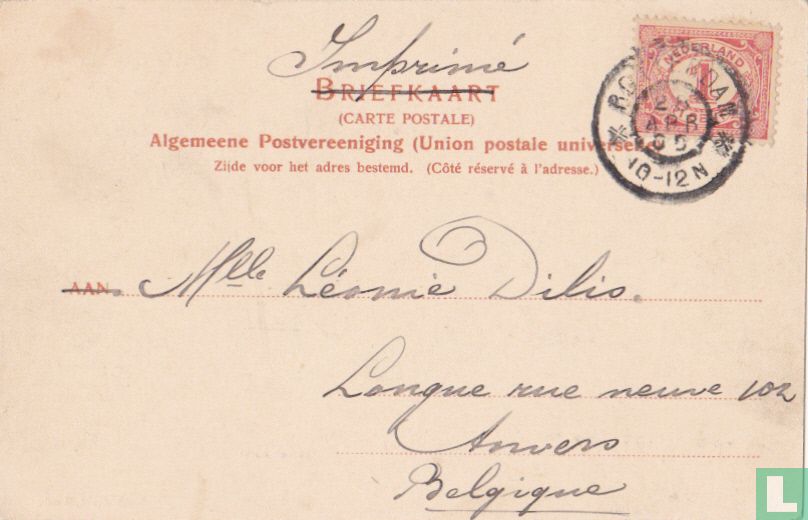 Imprimé
BRIEFKAART
(CARTE POSTALE)
Algemeene Postvereeniging (Union postale universelle)
Zijde voor het adres bestemd. (Côté réservé à l'adresse.)
NEDERLAND
1
APR
05
10-12N
AAN
Mlle Léonie Dilis.
Longue rue neuve 102
Anvers
Belgique
L